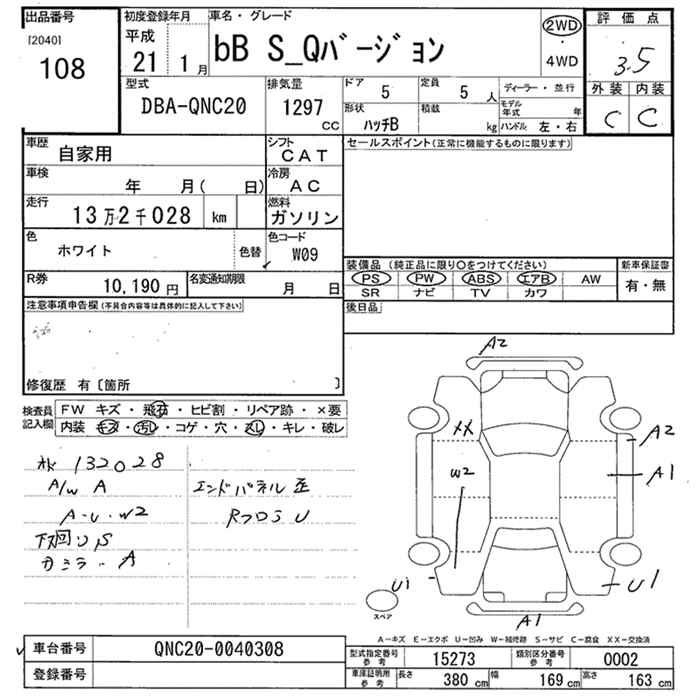 出品番号 初度登録年月 車名・グレード 評価点
[2040] 平成 2WD
108 21 1月 bB S_Qバージョン ・ 3.5
4WD
型式 排気量 ドア 5 定員 5人 ディーラー・並行 外装 内装
DBA-QNC20 1297 cc 形状 ハッチB 積載 kg モデル年式 年 C C
ハンドル 左・右
車歴 自家用 シフト CAT セールスポイント(正常に機能するものに限ります)
車検 年 月( 日) 冷房 AC
走行 13万2千028 km 燃料 ガソリン
色 ホワイト 色替 色コード W09
装備品 (純正品に限り○をつけてください) 新車保証書
R券 10,190円 名変通知期限 月 日 PS PW ABS エアB AW 有・無
SR ナビ TV カワ
注意事項申告欄(不具合内容等は具体的に記入して下さい) 後日品
修復歴 有〔箇所 〕
検査員 FW キズ・飛石・ヒビ割・リペア跡・×要
記入欄 内装 キズ・汚レ・コゲ・穴・スレ・キレ・破レ
A2
XX
A2
W2
A1
132028
A/W A エンドパネル歪
A-U・W2 RフロS U
下回りS
カミラー A
U1
U1
スペア
A1
A-キズ E-エクボ U-凹み W-補修跡 S-サビ C-腐食 XX-交換済
車台番号 QNC20-0040308
型式指定番号 参考 15273 類別区分番号 参考 0002
登録番号
車庫証明用 参考 長さ 380cm 幅 169cm 高さ 163cm